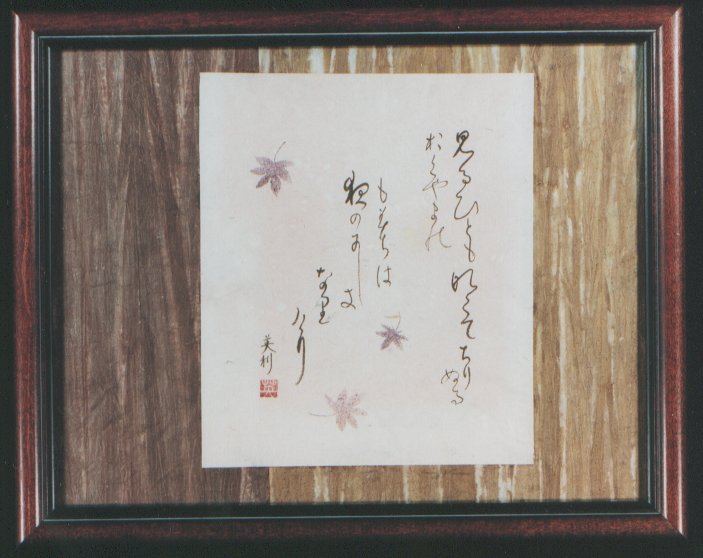 見るひともなくてちりぬる
おくやまの
もみちは
夜のにしき
なり
けり
美利